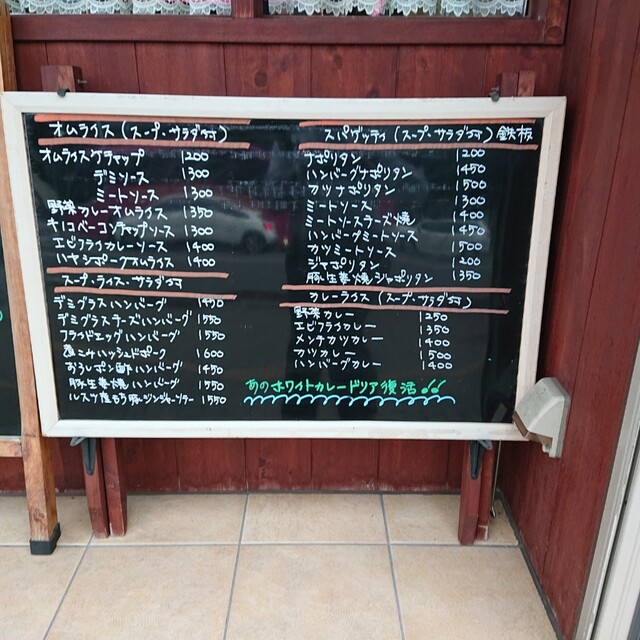 オムライス(スープ・サラダ付)
オムライスケチャップ 1200
デミソース 1300
ミートソース 1300
野菜カレーオムライス 1350
キノコベーコンケチャップソース 1300
エビフライカレーソース 1400
ハヤシポークオムライス 1400
スープ・ライス・サラダ付
デミグラスハンバーグ 1450
デミグラスチーズハンバーグ 1550
フライドエッグハンバーグ 1550
ハッシュドポーク 1600
おろしポン酢ハンバーグ 1450
豚生姜焼ハンバーグ 1550
ルスツ産もち豚ジンジャーソテー 1550
スパゲッティ(スープ・サラダ付)鉄板
ナポリタン 1200
ハンバーグナポリタン 1450
カツナポリタン 1500
ミートソース 1300
ミートソースチーズ焼 1400
ハンバーグミートソース 1450
カツミートソース 1500
ジャポリタン 1200
豚生姜焼ジャポリタン 1350
カレーライス(スープ・サラダ付)
野菜カレー 1250
エビフライカレー 1350
メンチカツカレー 1400
カツカレー 1500
ハンバーグカレー 1400
あのホワイトカレードリア復活